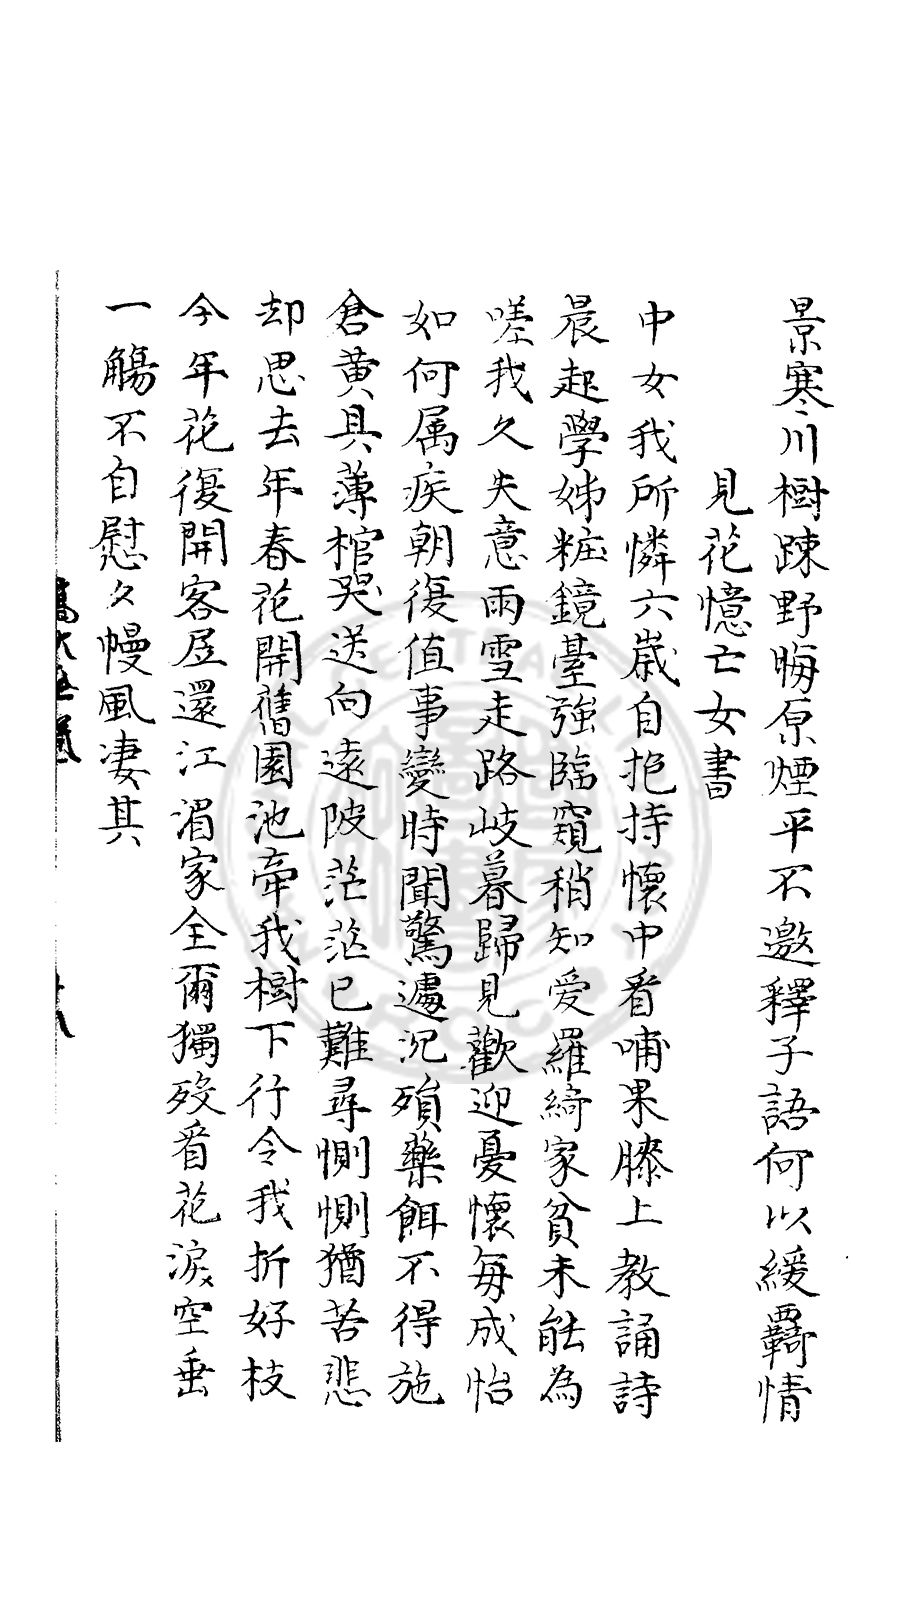 景寒川樹踈野晦原煙平不邀釋子語何以緩羇情
見花憶亡女書
中女我所憐六歲自抱持懷中看哺果膝上教誦詩
晨起學姊粧鏡臺強臨窺稍知愛羅綺家貧未能為
嗟我久失意雨雪走路岐暮歸見歡迎憂懷每成怡
如何属疾朝復值事變時聞驚遽沉殞藥餌不得施
倉黄具薄棺哭送向遠陂茫茫已難尋惻惻猶苦悲
却思去年春花開舊園池牽我樹下行令我折好枝
今年花復開客居還江湄家全爾獨歿看花淚空垂
一觴不自慰夕幔風凄其